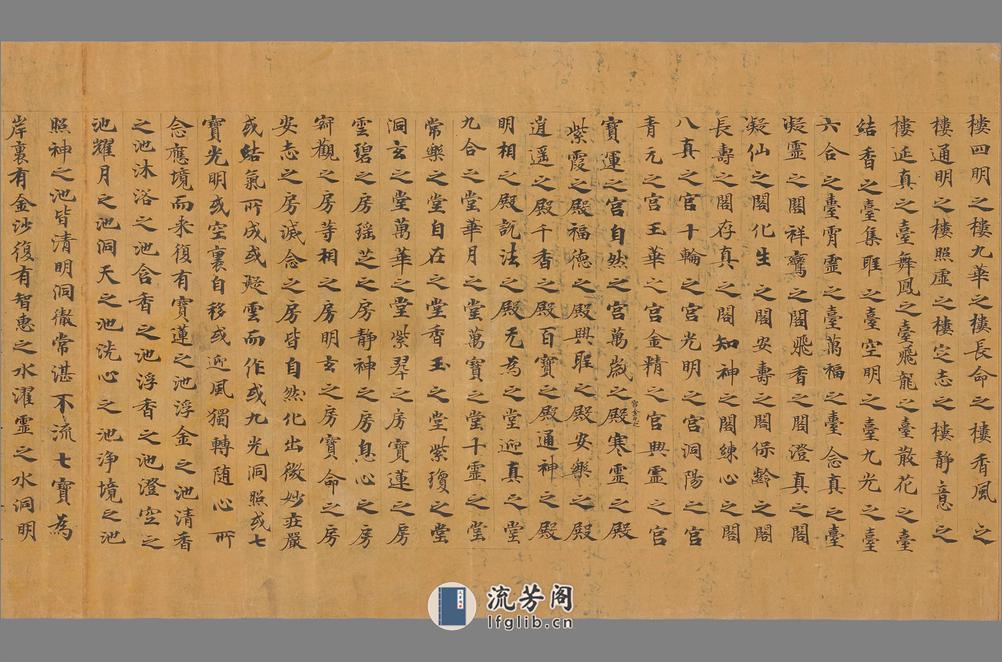 樓四明之樓九華之樓長命之樓香風之
樓通明之樓照虛之樓定志之樓靜意之
樓延真之臺舞鳳之臺飛龍之臺散花之臺
結香之臺集㕠之臺空明之臺九光之臺
六合之臺霄靈之臺萬福之臺念真之臺
凝靈之閣祥鸞之閣飛香之閣澄真之閣
凝仙之閣化生之閣安壽之閣保齡之閣
長壽之閣存真之閣知神之閣練心之閣
八真之宮十輪之宮光明之宮洞陽之宮
青元之宮玉華之宮金精之宮興靈之宮
寶運之宮自然之宮萬歲之殿寒靈之殿
紫霞之殿福德之殿興㕠之殿安樂之殿
逍遥之殿千香之殿百寶之殿通神之殿
明相之殿說法之殿无為之堂迎真之堂
九合之堂華月之堂萬寶之堂十靈之堂
常樂之堂自在之堂香玉之堂紫瓊之堂
洞玄之堂萬華之堂紫翠之房寶蓮之房
雲碧之房瑶芝之房靜神之房息心之房
竒觀之房等相之房明玄之房寶命之房
安志之房滅念之房皆自然化出微妙莊嚴
或結氣所成或凝雲而作或九光洞照或七
寶光明或空裏自移或迎風獨轉随心所
念應境而来復有寶蓮之池浮金之池清香
之池沐浴之池含香之池浮香之池澄空之
池耀月之池洞天之池洗心之池淨境之池
照神之池皆清明洞徹常湛不流七寶為
岸裏有金沙復有智惠之水濯靈之水洞明
流芳阁
lfglib.cn